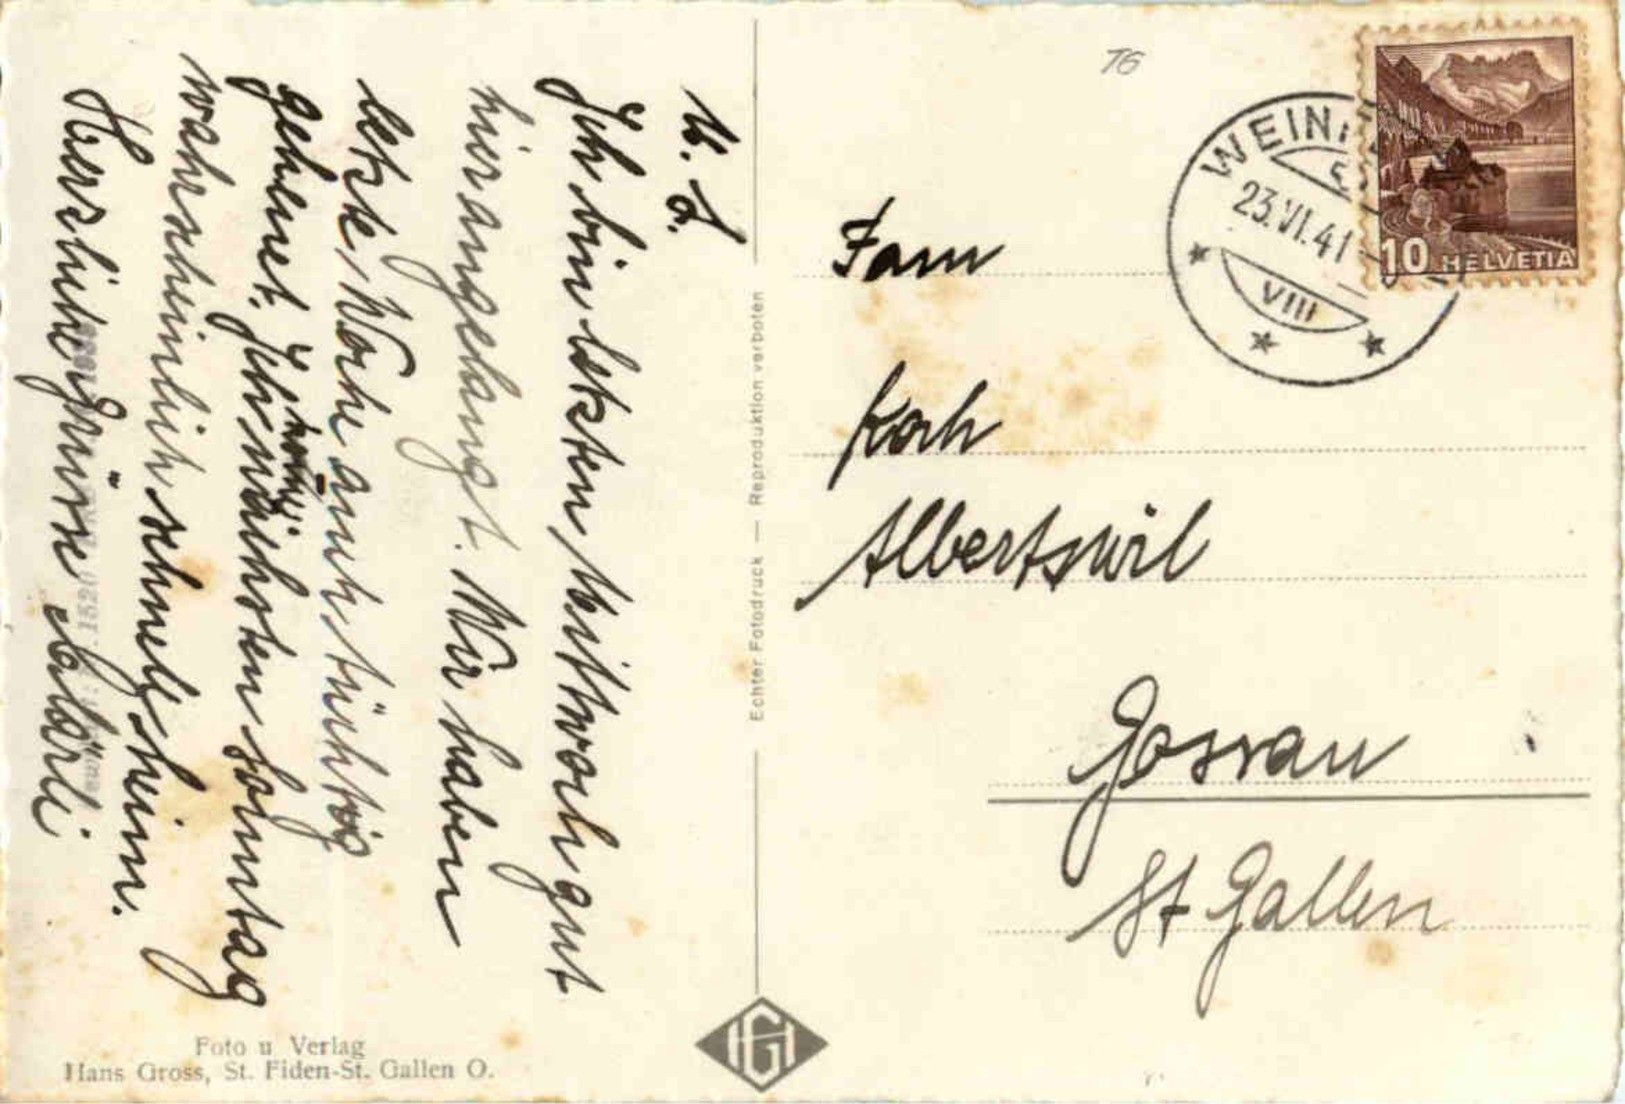 M. L.
Ich bin letzten Mittwoch gut
hier angelangt. Wir haben
letzte Woche auch tüchtig
geheuet. Ich komme
nächsten Sonntag
wahrscheinlich schnell heim.
Herzliche Grüsse
Fam
Koch
Albertswil
Gossau
St Gallen
76
WEIN
23.VI.41
VIII
10 HELVETIA
Echter Fotodruck — Reproduktion verboten
HG
Foto u Verlag
Hans Gross, St. Fiden-St. Gallen O.